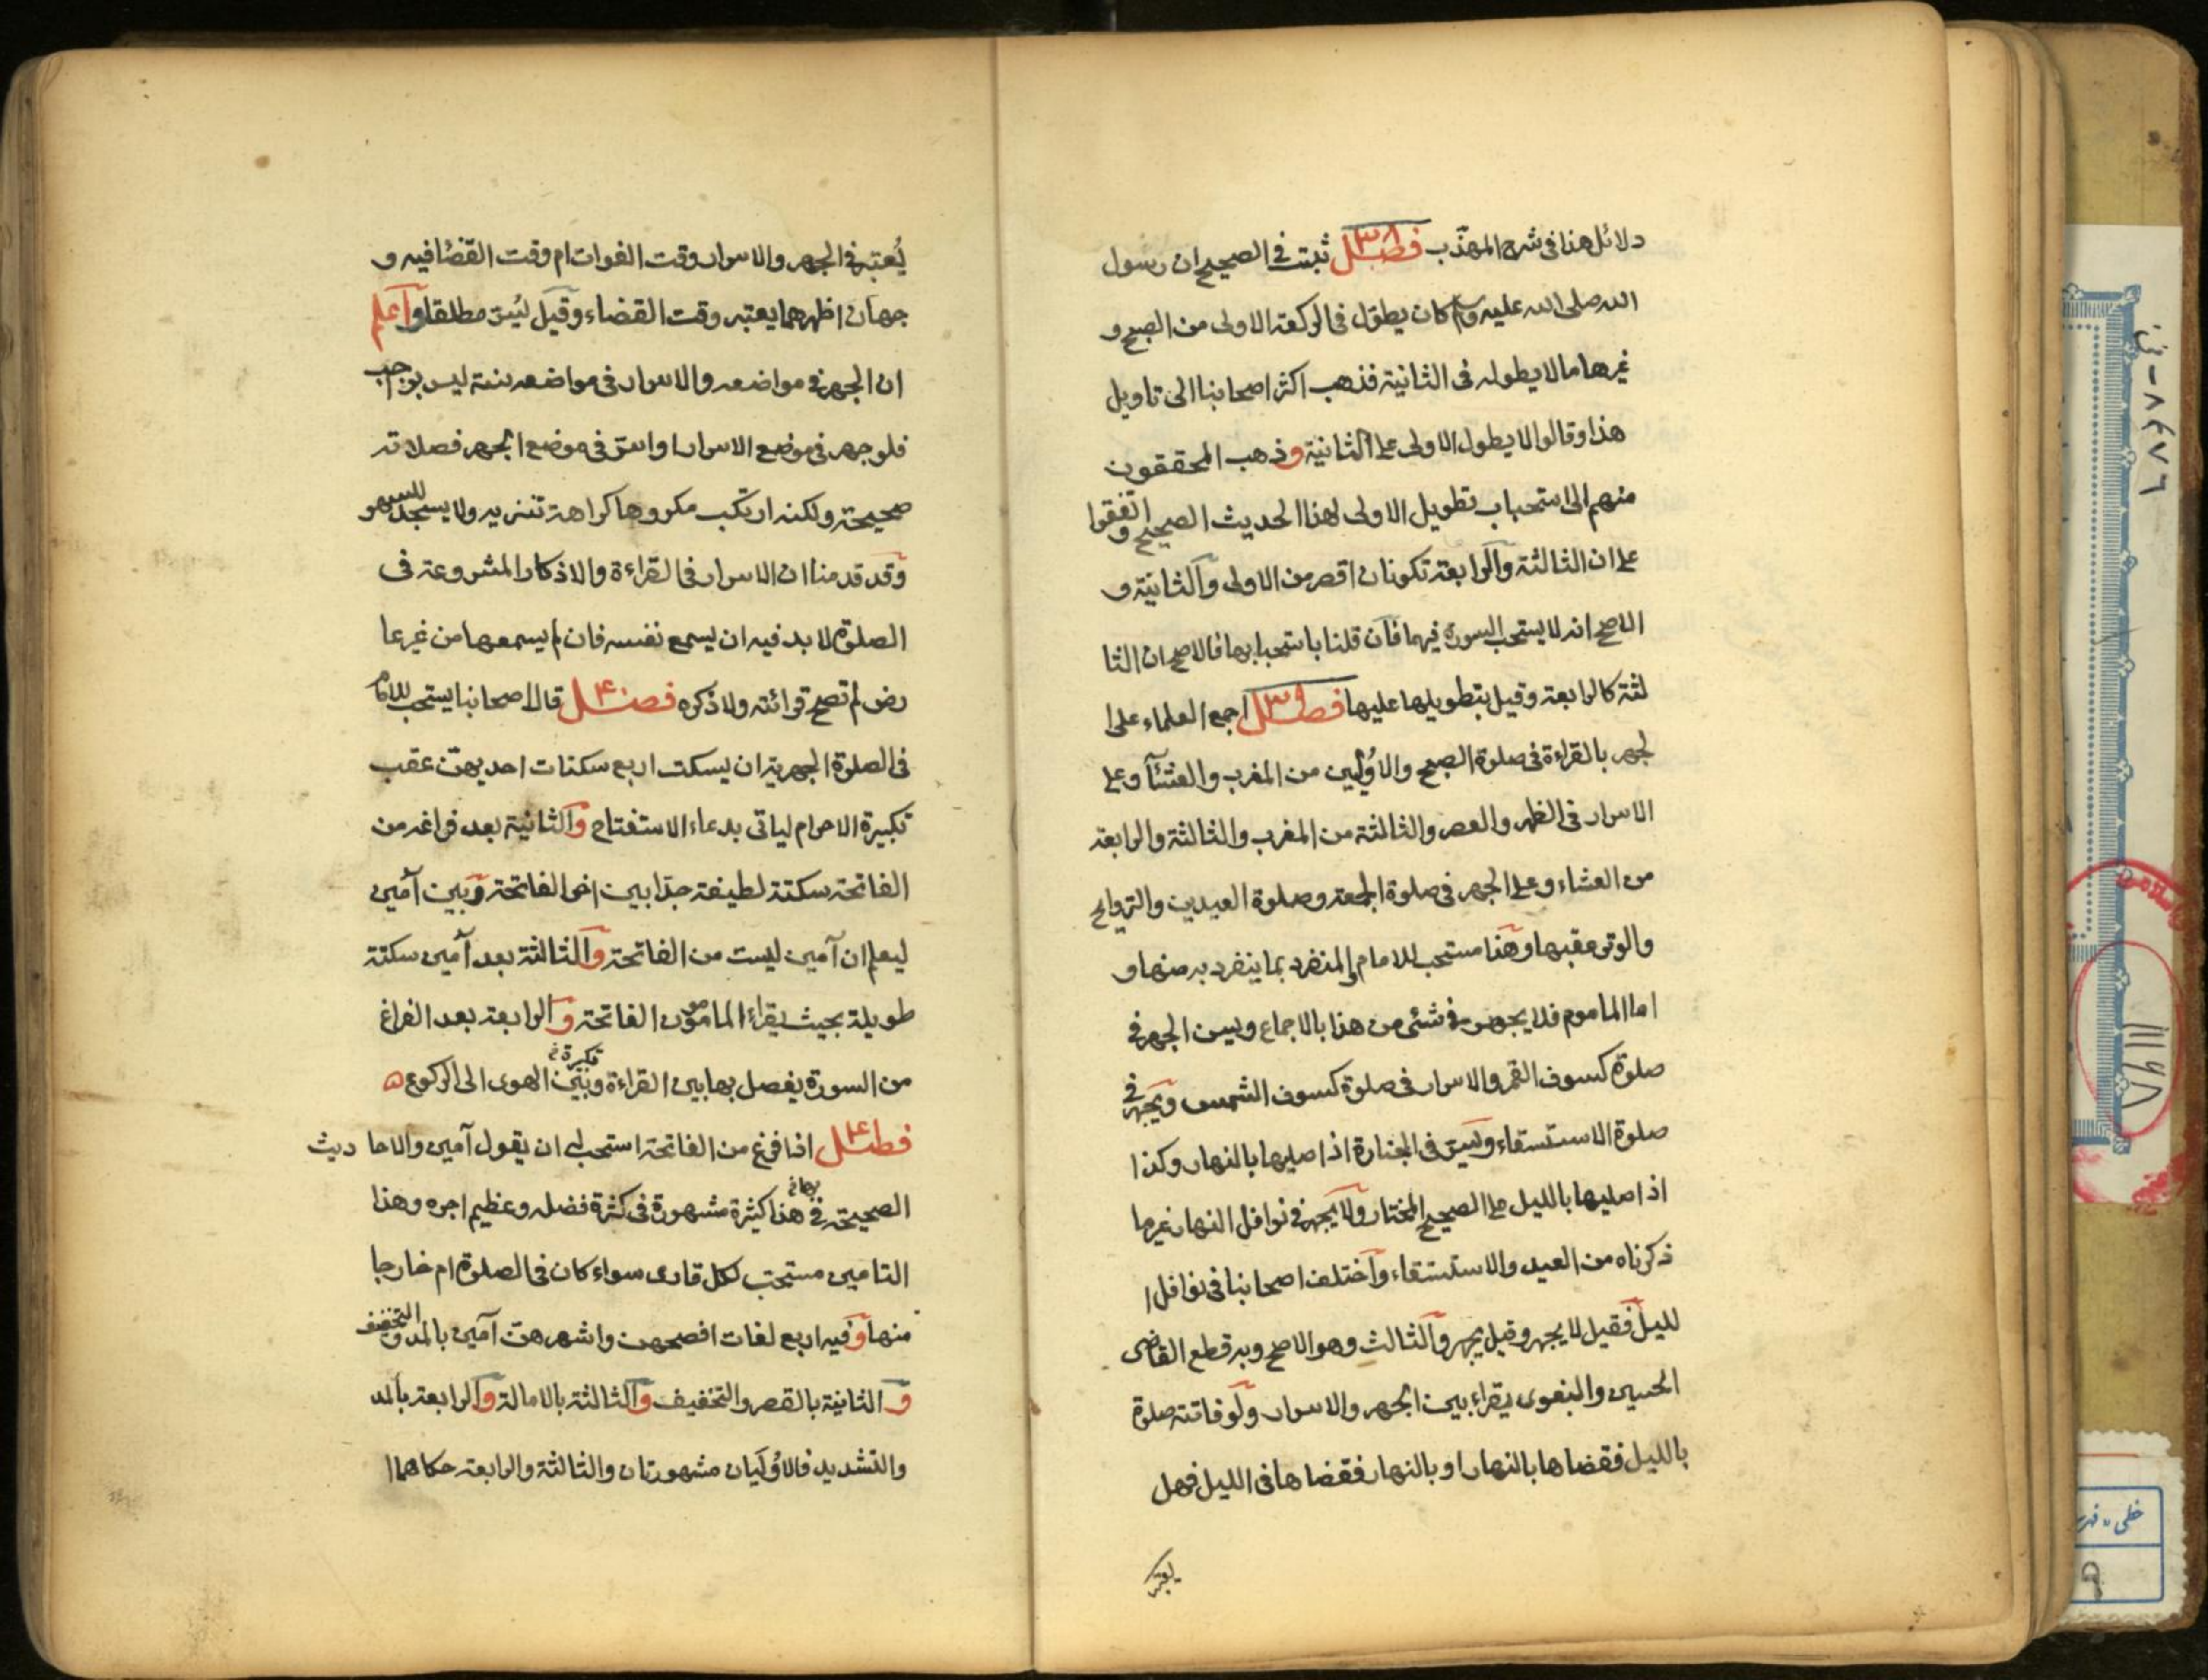 دلائل هنا فى شرح المهذّب فصل ٣٨ ثبت فى الصحيح ان رسول
الله صلى الله عليه وسلم كان يطول فى الركعة الاولى من الصبح و
غيرها ما لا يطوله فى الثانية فذهب اكثر اصحابنا الى تاويل
هذا وقالوا لا يطول الاولى على الثانية وذهب المحققون
منهم الى استحباب تطويل الاولى لهذا الحديث الصحيح واتفقوا
على ان الثالثة والرابعة تكونان اقصر من الاولى والثانية و
الاصح انه لا يستحب السورة فيهما فان قلنا باستحبابها فالاصح ان الثا
لثة كالرابعة وقيل بتطويلها عليها فصل ٣٩ اجمع العلماء على ا
لجهر بالقراءة فى صلوة الصبح والاوليين من المغرب والعشآء وعلى
الاسرار فى الظهر والعصر والثالثة من المغرب والثالثة والرابعة
من العشاء وعلى الجهر فى صلوة الجمعة وصلوة العيدين والتراويح
والوتر عقبها وهذا مستحب للامام والمنفرد بما ينفرد به منها و
اما الماموم فلا يجهر فى شئ من هذا بالاجماع ويسن الجهر فى
صلوة كسوف القمر والاسرار فى صلوة كسوف الشمس ويجهر فى
صلوة الاستسقاء ويسر فى الجنازة اذا صليها بالنهار وكذا
اذا صليها بالليل على الصحيح المختار ولا يجهر فى نوافل النهار غير ما
ذكرناه من العيد والاستسقاء واختلف اصحابنا فى نوافل ا
لليل فقيل لا يجهر وقيل يجهر والثالث وهو الاصح وبه قطع القاضى
الحسين والبغوى يقراء بين الجهر والاسرار ولو فاتته صلوة
بالليل فقضاها بالنهار او بالنهار فقضاها فى الليل فهل
يعتبر
يُعتبر فى الجهر والاسرار وقت الفوات ام وقت القضٓا فيه و
جهان اظهرهما يعتبر وقت القضاء وقيل يسر مطلقا واعلم
ان الجهر فى مواضعه والاسرار فى مواضعه سنة ليس بواجب
فلو جهر فى موضع الاسرار او اسر فى موضع الجهر فصلاته
صحيحة ولكنه ارتكب مكروها كراهة تنزيه ولا يسجد للسهو
وقد قدمنا ان الاسرار فى القراءة والاذكار المشروعة فى
الصلوة لا بد فيه ان يسمع نفسه فان لم يسمعها من غير عا
رض لم تصح قرائته ولا ذكره فصل ٤٠ قال اصحابنا يستحب للامام
فى الصلوة الجهرية ان يسكت اربع سكتات احديهن عقب
تكبيرة الاحرام لياتى بدعاء الاستفتاح والثانية بعد فراغه من
الفاتحة سكتة لطيفة جدّا بين اخر الفاتحة وبين آمين
ليعلم ان آمين ليست من الفاتحة والثالثة بعد آمين سكتة
طويلة بحيث يقراء المامومون الفاتحة والرابعة بعد الفراغ
من السورة يفصل بها بين القراءة وبين تكبيرة الهوى الى الركوع
فصل ٤١ اذا فرغ من الفاتحة استحب له ان يقول آمين والاحا ديث
الصحيحة فى هذا كثيرة مشهورة فى كثرة فضله وعظيم اجره وهذا
التامين مستحب لكل قارى سواء كان فى الصلوة ام خارجا
منها وفيه اربع لغات افصحهن واشهرهن آمين بالمد والتخفيف
و الثانية بالقصر والتخفيف والثالثة بالامالة والرابعة بالمد
والتشديد فالاوليان مشهورتان والثالثة والرابعة حكاهما ا
١١١٦٨